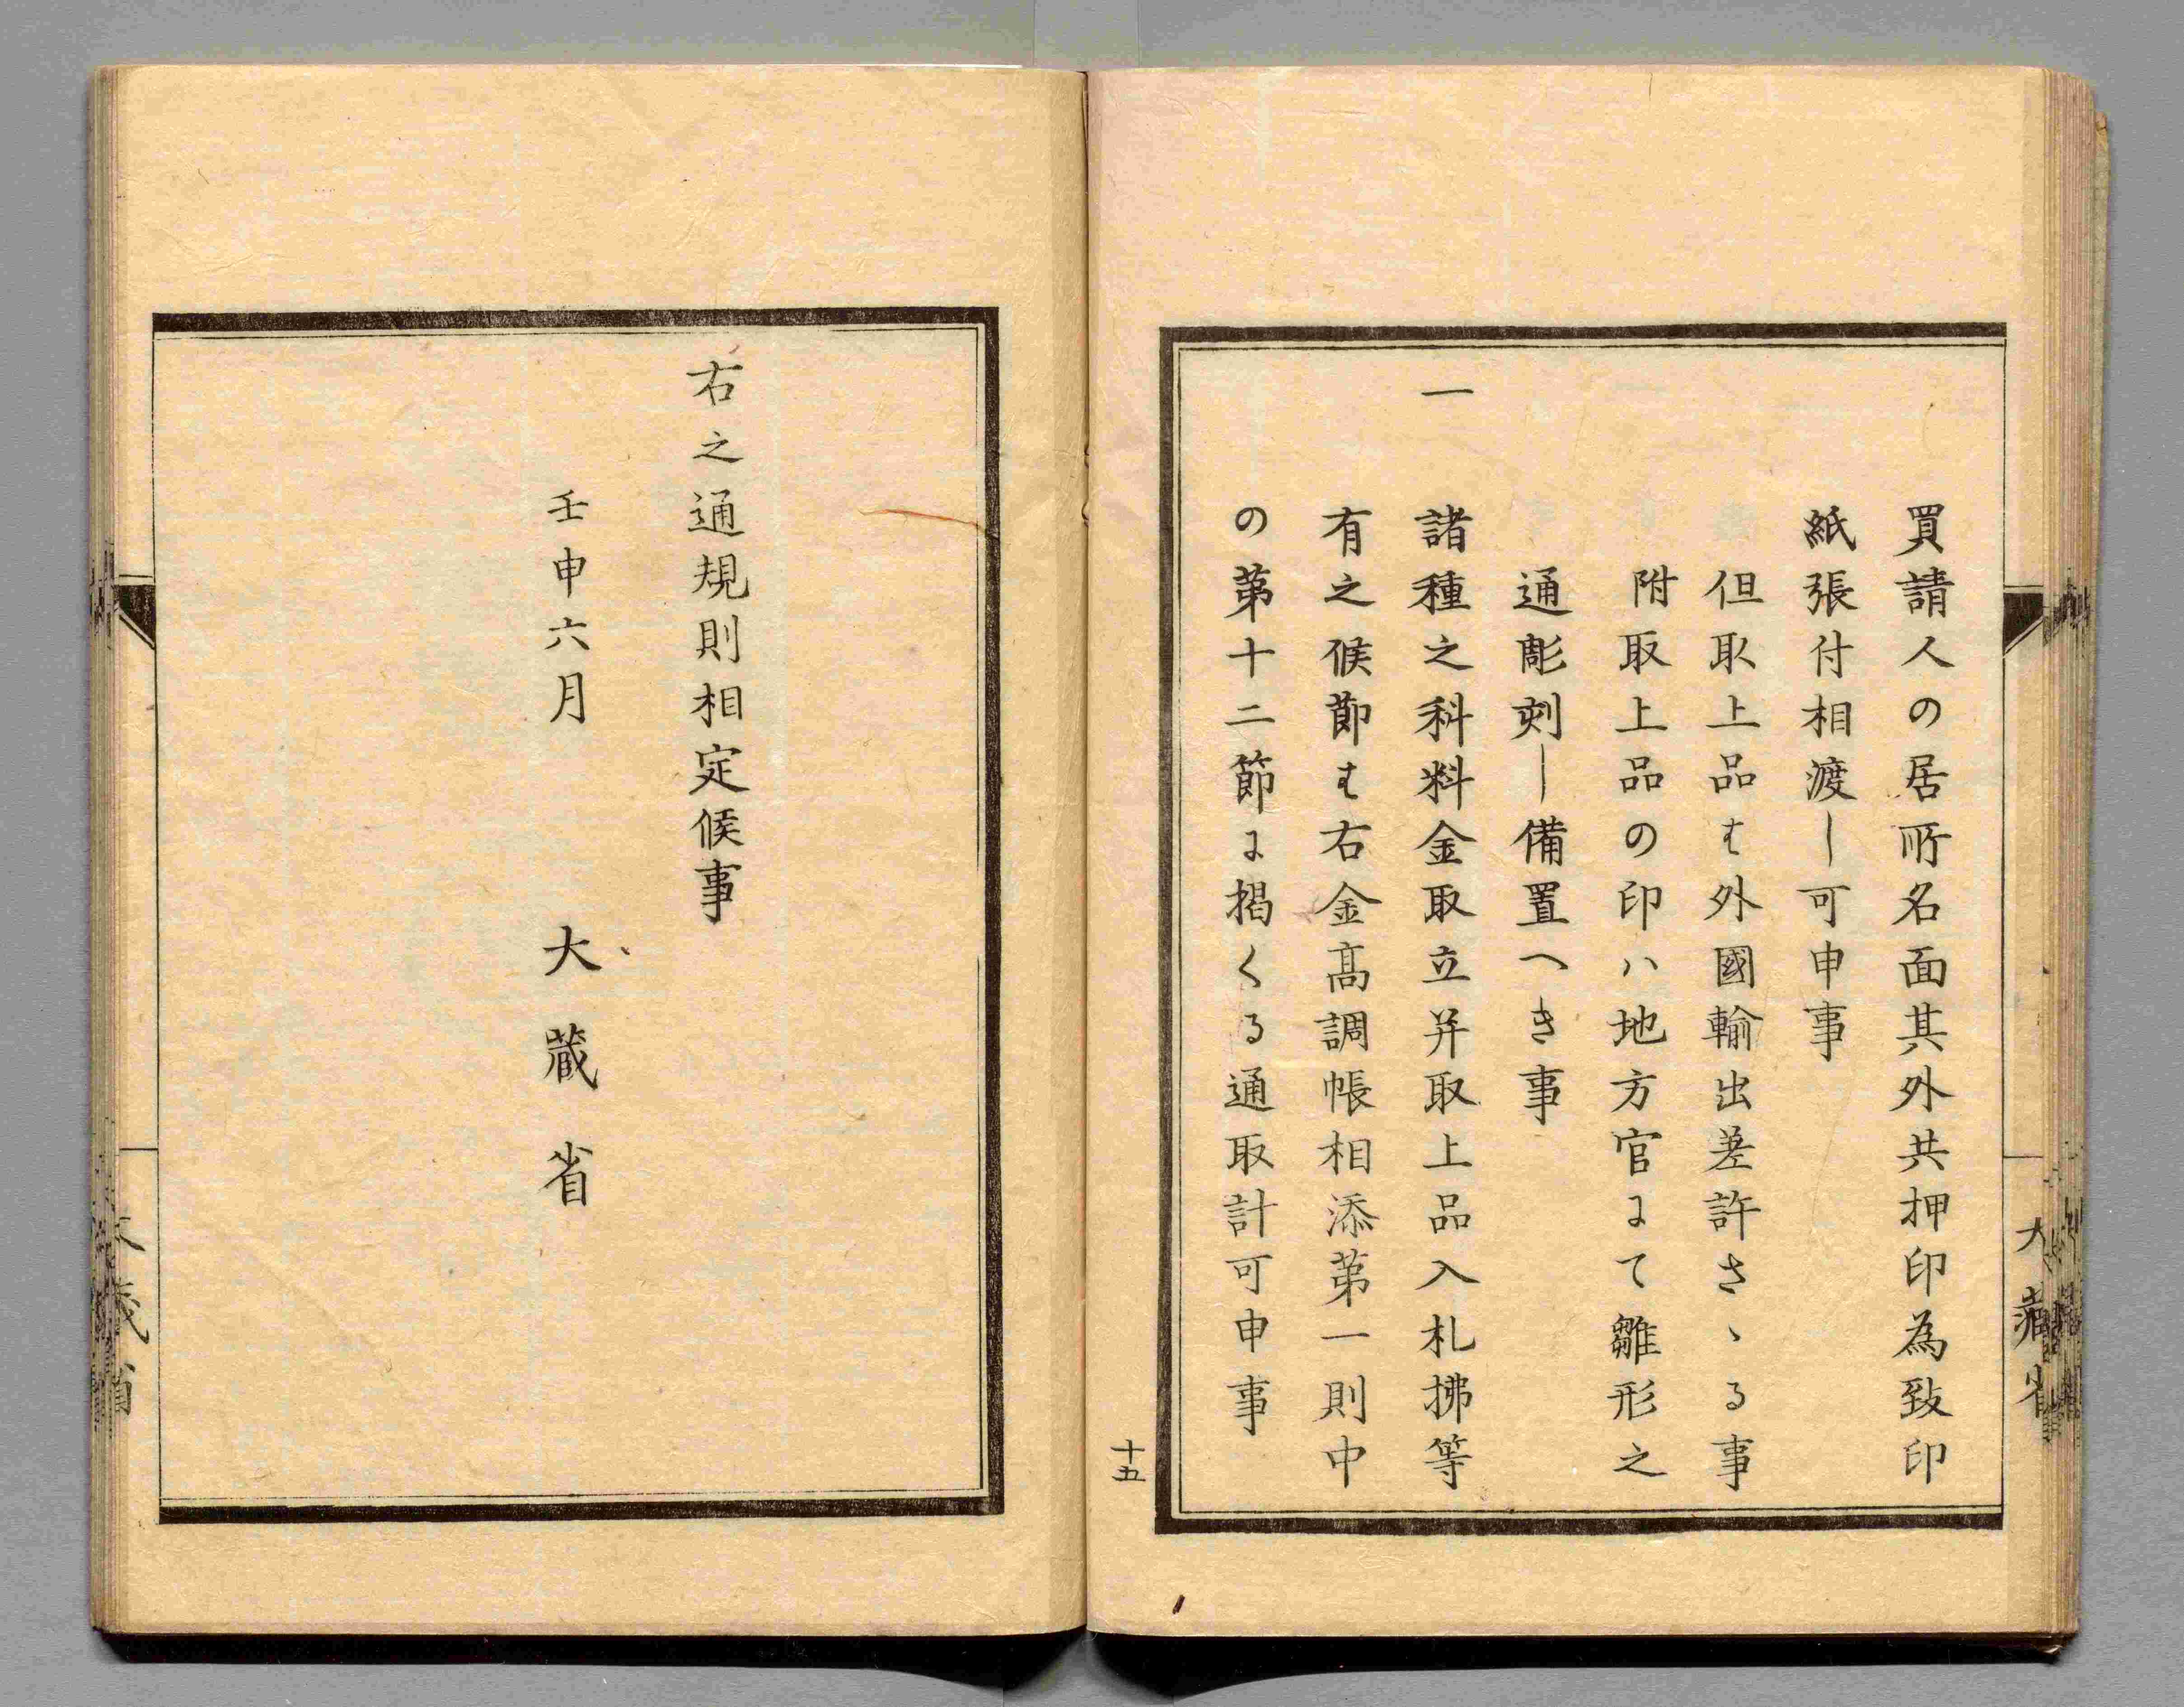 買請人の居所名面其外共押印為致印
紙張付相渡し可申事
但取上品は外國輸出差許さゝる事
附取上品の印ハ地方官にて雛形之
通彫刻し備置へき事
一 諸種之科料金取立并取上品入札拂等
有之候節は右金髙調帳相添第一則中
の第十二節に掲くる通取計可申事
十五
大藏省
右之通規則相定候事
壬申六月
大藏省